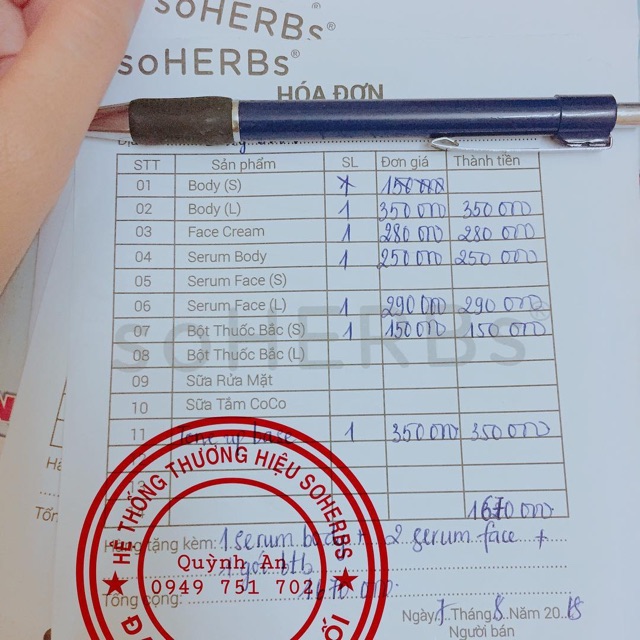 soHERBs®
soHERBs®
HÓA ĐƠN
STT Sản phẩm SL Đơn giá Thành tiền
01 Body (S) 1 150 000
02 Body (L) 1 350 000 350 000
03 Face Cream 1 280 000 280 000
04 Serum Body 1 250 000 250 000
05 Serum Face (S)
06 Serum Face (L) 1 290 000 290 000
07 Bột Thuốc Bắc (S) 1 150 000 150 000
soHERBs®
08 Bột Thuốc Bắc (L)
09 Sữa Rửa Mặt
10 Sữa Tắm CoCo
11 Tone up base 1 350 000 350 000
1670 000
HỆ THỐNG THƯƠNG HIỆU SOHERBS
Hàng tặng kèm: 1 serum body + 2 serum face +
1 gói btb
Quỳnh An
0949 751 702
Tổng cộng: 1670 000
Ngày 7 Tháng 8 Năm 2018
Người bán